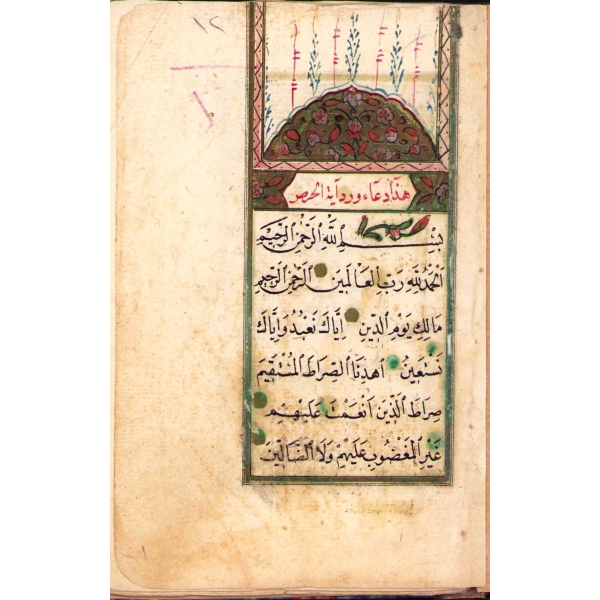 ١٢
هذا دعاء ورد آية الحرص
بِسْمِ اللَّهِ الرَّحْمَنِ الرَّحِيمِ
اَلْحَمْدُ لِلَّهِ رَبِّ الْعَالَمِينَ الرَّحْمَنِ الرَّحِيمِ
مَالِكِ يَوْمِ الدِّينِ اِيَّاكَ نَعْبُدُ وَاِيَّاكَ
نَسْتَعِينُ اِهْدِنَا الصِّرَاطَ الْمُسْتَقِيمَ
صِرَاطَ الَّذِينَ اَنْعَمْتَ عَلَيْهِمْ
غَيْرِ الْمَغْضُوبِ عَلَيْهِمْ وَلَا الضَّالِّينَ